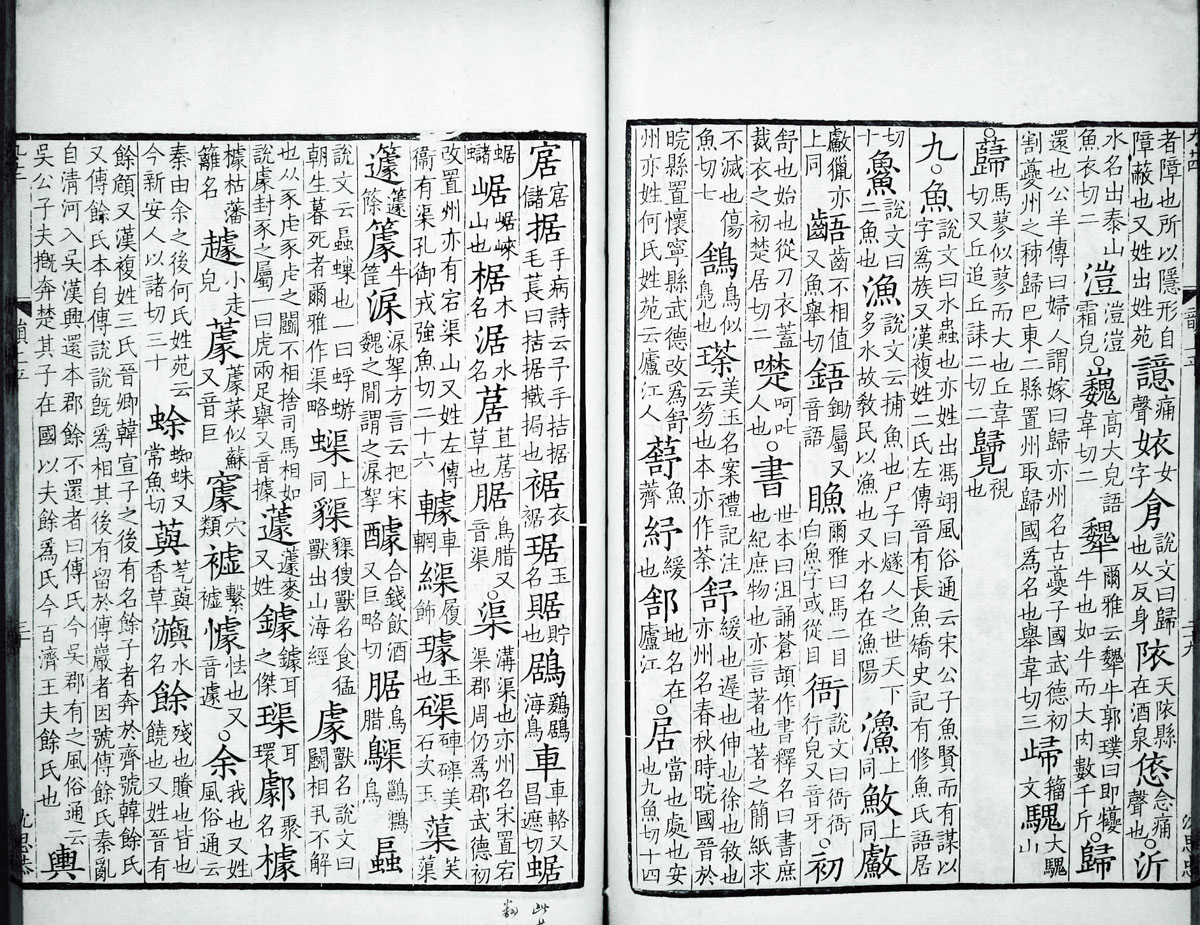 者障也所以隱形自障蔽也又姓出姓苑譩痛聲㛄女字㐆說文曰歸也从反身依天依縣在酒泉㥋念痛聲也○沂
水名出泰山魚衣切二溰溰溰霜皃○巍高大皃語韋切二犩爾雅云犩牛郭璞曰即犪牛也如牛而大肉數千斤○歸
還也公羊傳曰婦人謂嫁曰歸亦州名古夔子國武德初割夔州之秭歸巴東二縣置州取歸國爲名也舉韋切三㱕籀文騩大騩山
○蘬馬蓼似蓼而大也丘韋切又丘追丘誄二切二視也
九○魚說文曰水蟲也亦姓出馮翊風俗通云宋公子魚賢而有謀以字爲族又漢複姓二氏左傳晉有長魚矯史記有修魚氏語居
切十䲆說文曰二魚也漁說文云捕魚也尸子曰燧人之世天下多水故敎民以漁也又水名在漁陽𤀯上同䰻上同㪨
獵亦上同齬齒不相值又魚舉切鋙鋤屬又音語䁩爾雅曰馬二目白魚字或從目衙說文曰衙衙行皃又音牙○初
舒也始也從刀衣蓋裁衣之初楚居切二呵叱人也○書世本曰沮誦蒼頡作書釋名曰書庶也紀庶物也亦言著也著之簡紙求
不滅也傷魚切七鵨鳥似鳧也瑹美玉名案禮記注云笏也本亦作荼舒緩也遲也伸也徐也敘也亦州名春秋時晥國晉於
晥縣置懷寧縣武德改爲舒州亦姓何氏姓苑云廬江人魚薺紓緩也地名在廬江○居當也處也安也九魚切十四
㝒㝒儲据手病詩云予手拮据毛萇曰拮据撠挶也裾衣裾琚玉名䝻貯也鶋鶢鶋海鳥車車輅又昌遮切蜛
蜛蝫崌崌崍山也椐木名涺水名䓕苴䓕草也腒鳥腊又音渠○渠溝渠也亦州名宋置宕渠郡周仍爲郡武德初
改置州亦有宕渠山又姓左傳衞有渠孔御戎強魚切二十六車輞履飾璩玉也磲硨磲美石次玉蕖芙蕖
籧籧篨牛筐淭淭挐方言云把宋魏之閒謂之淭挐醵合錢飲酒又巨略切腒鳥腊
說文云蟝也一曰蜉蝣朝生暮死者爾雅作渠略蟝上同獸名食猛獸出山海經豦獸名說文曰鬬相丮不解
也从豕虍豕虍之鬬不相捨司馬相如說豦封豕之屬一曰虎兩足舉又音據蘧蘧麥又姓鐻鐻耳之傑璖耳環㔧聚名㯫
㯫枯藩籬名小走皃菜似蘇又音巨穴類繫怯也又音遽○余我也又姓風俗通云
秦由余之後何氏姓苑云今新安人以諸切三十蜍蜘蛛又常魚切䔡芞䔡香草㶛水名餘殘也賸也皆也饒也又姓晉有
餘頠又漢複姓三氏晉卿韓宣子之後有名餘子者奔於齊號韓餘氏又傳餘氏本自傅說說旣爲相其後有留於傅巖者因號傅餘氏秦亂
自清河入吳漢興還本郡餘不還者曰傅氏今吳郡有之風俗通云吳公子夫摡奔楚其子在國以夫餘爲氏今百濟王夫餘氏也輿